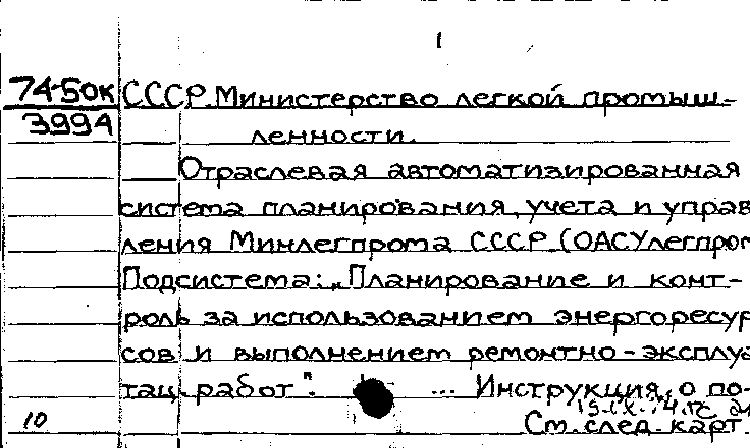 1
74-5ок СССР. Министерство легкой промыш-
3994 ленности.
Отраслевая автоматизированная
система планирования, учета и управ
ления Минлегпрома СССР (ОАСУлегпром
Подсистема: „Планирование и конт-
роль за использованием энергоресур
сов и выполнением ремонтно-эксплуа
тац. работ". ... Инструкция о по-
10 См. след. карт.